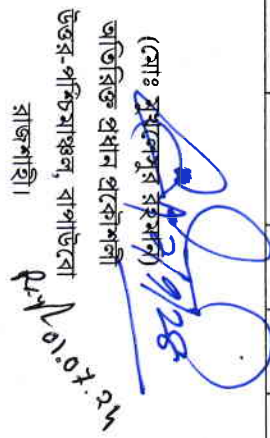 (মোঃ মুখলেসুর রহমান)
অতিরিক্ত প্রধান প্রকৌশলী
উত্তর-পশ্চিমাঞ্চল, বাপাউবো
রাজশাহী।
01.07.24